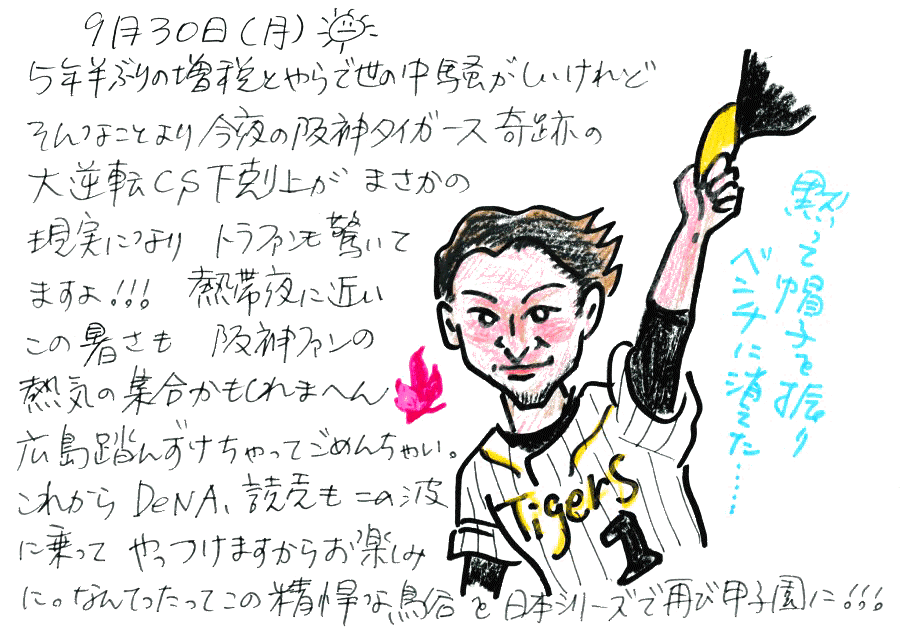 9月30日(月)
5年半ぶりの増税とやらで世の中騒がしいけれど
そんなことより今夜の阪神タイガース奇跡の
大逆転CS下剋上が まさかの
現実になり トラファンも驚いて
ますよ!!! 熱帯夜に近い
この暑さも 阪神ファンの
熱気の集合かもしれまへん
広島踏んずけちゃってごめんちゃい。
これからDeNA、読売もこの波
に乗って やっつけますからお楽しみ
に。なんてったってこの精悍な鳥谷を日本シリーズで再び甲子園に!!!
黙って帽子を振り
ベンチに消えた……
Tigers
1